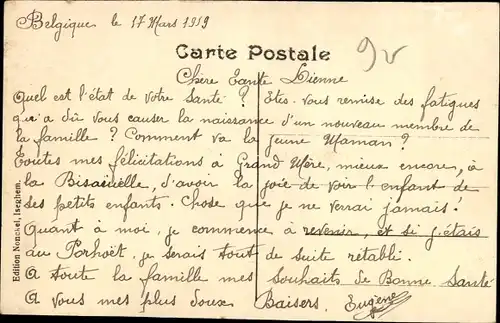 Belgique le 17 Mars 1919
Carte Postale
Chère Tante
Quel est l'état de votre Santé ? Etes-vous remise des fatigues
qu'a dû vous causer la naissance d'un nouveau membre de
la famille ? Comment va la jeune Maman ?
Toutes mes félicitations à Grand Mère, mieux encore, à
la Bisaïeulle, d'avoir la joie de voir l'enfant de
ses petits enfants. Chose que je ne verrai jamais !
Quant à moi, je commence à revenir, et si j'étais
au Porhoët, je serais tout de suite rétabli.
A toute la famille mes souhaits de Bonne Santé
A vous mes plus doux Baisers. Eugène
Edition Nonckel, Iseghem.